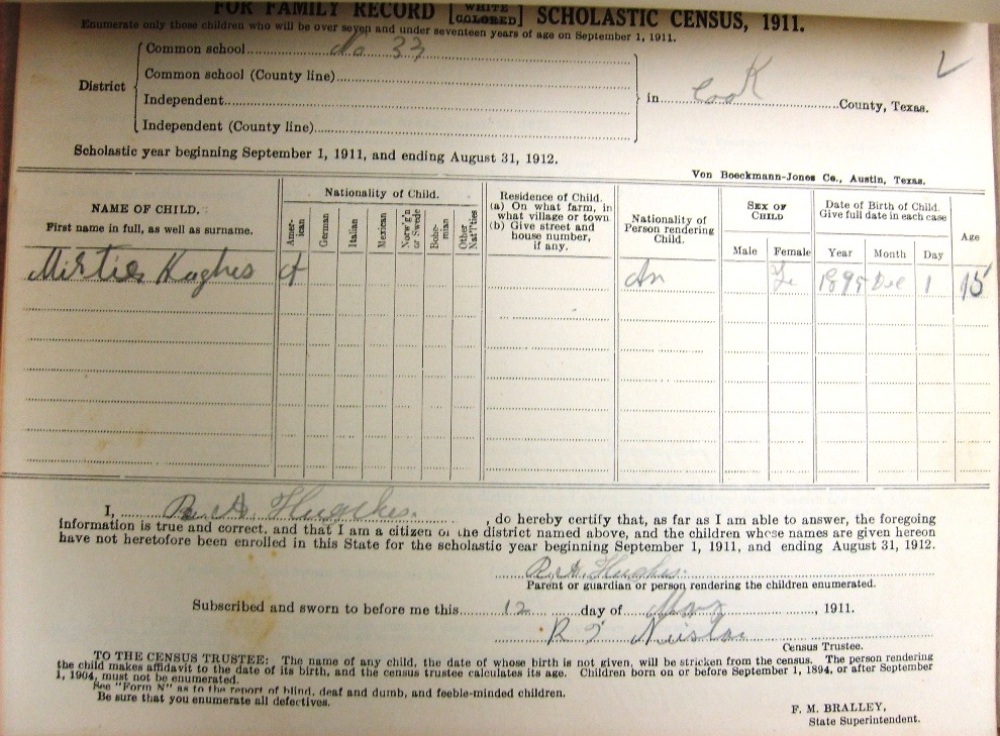 FOR FAMILY RECORD [WHITE COLORED] SCHOLASTIC CENSUS, 1911.
Enumerate only those children who will be over seven and under seventeen years of age on September 1, 1911.
Common school No 33
Common school (County line)
District
Independent
in Cook County, Texas.
Independent (County line)
Scholastic year beginning September 1, 1911, and ending August 31, 1912.
Von Boeckmann-Jones Co., Austin, Texas.
NAME OF CHILD.
First name in full, as well as surname.
Nationality of Child.
American
German
Italian
Mexican
Norw'g'n or Swede
Bohemian
Other Nat'l'ties
Residence of Child.
(a) On what farm, in
what village or town
(b) Give street and
house number,
if any.
Nationality of
Person rendering
Child.
SEX OF
CHILD
Male Female
Date of Birth of Child.
Give full date in each case
Year Month Day
Age
Hughes Am Fe 1895 Dec 1 15
I, R. A. Hughes. , do hereby certify that, as far as I am able to answer, the foregoing
information is true and correct, and that I am a citizen of the district named above, and the children whose names are given hereon
have not heretofore been enrolled in this State for the scholastic year beginning September 1, 1911, and ending August 31, 1912.
R. A. Hughes.
Parent or guardian or person rendering the children enumerated.
Subscribed and sworn to before me this 12 day of , 1911.
R
Census Trustee.
TO THE CENSUS TRUSTEE: The name of any child, the date of whose birth is not given, will be stricken from the census. The person rendering
the child makes affidavit to the date of its birth, and the census trustee calculates its age. Children born on or before September 1, 1894, or after September
1, 1904, must not be enumerated.
See "Form N" as to the report of blind, deaf and dumb, and feeble-minded children.
Be sure that you enumerate all defectives.
F. M. BRALLEY,
State Superintendent.